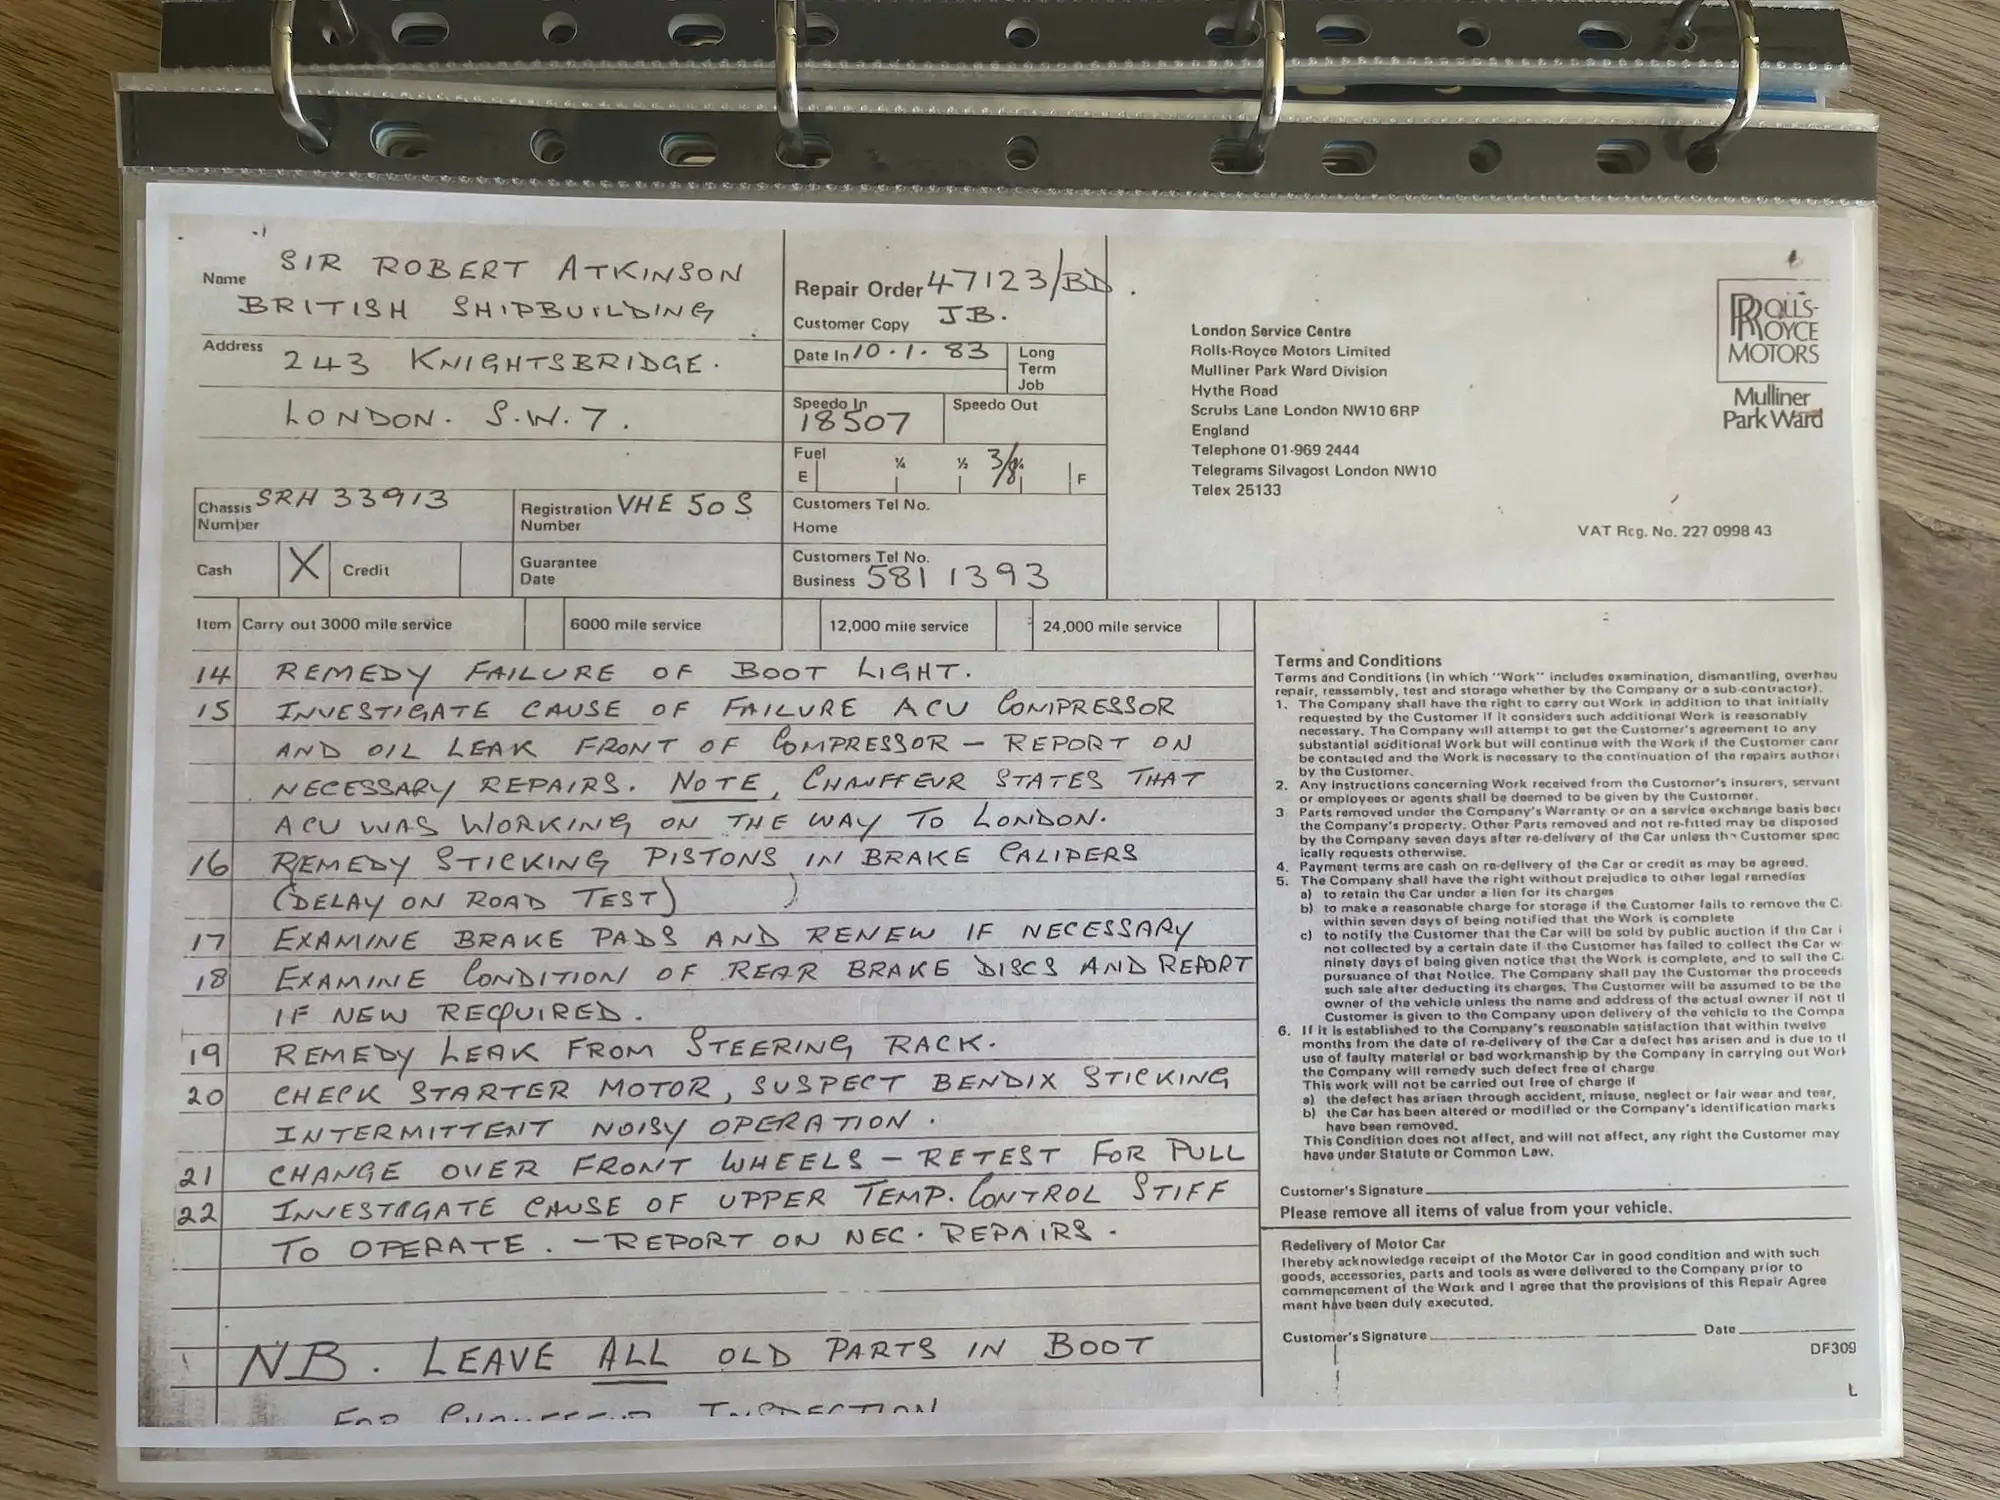 Name SIR ROBERT ATKINSON
BRITISH SHIPBUILDING
Address 243 KNIGHTSBRIDGE.
LONDON. S.W.7.
Chassis Number SRH 33913
Registration Number VHE 50S
Cash X Credit
Guarantee Date
Repair Order 47123/BD.
Customer Copy JB.
Date In 10.1.83
Long Term Job
Speedo In 18507
Speedo Out
Fuel E 1/4 1/2 3/8 3/4 F
Customers Tel No.
Home
Customers Tel No.
Business 581 1393
London Service Centre
Rolls-Royce Motors Limited
Mulliner Park Ward Division
Hythe Road
Scrubs Lane London NW10 6RP
England
Telephone 01-969 2444
Telegrams Silvagost London NW10
Telex 25133
VAT Reg. No. 227 0998 43
ROLLS-
ROYCE
MOTORS
Mulliner
Park Ward
Item Carry out 3000 mile service 6000 mile service 12,000 mile service 24,000 mile service
14 REMEDY FAILURE OF BOOT LIGHT.
15 INVESTIGATE CAUSE OF FAILURE ACU COMPRESSOR
AND OIL LEAK FRONT OF COMPRESSOR – REPORT ON
NECESSARY REPAIRS. NOTE, CHAUFFEUR STATES THAT
ACU WAS WORKING ON THE WAY TO LONDON.
16 REMEDY STICKING PISTONS IN BRAKE CALIPERS
(DELAY ON ROAD TEST)
17 EXAMINE BRAKE PADS AND RENEW IF NECESSARY
18 EXAMINE CONDITION OF REAR BRAKE DISCS AND REPORT
IF NEW REQUIRED.
19 REMEDY LEAK FROM STEERING RACK.
20 CHECK STARTER MOTOR, SUSPECT BENDIX STICKING
INTERMITTENT NOISY OPERATION.
21 CHANGE OVER FRONT WHEELS – RETEST FOR PULL
22 INVESTIGATE CAUSE OF UPPER TEMP. CONTROL STIFF
TO OPERATE. – REPORT ON NEC. REPAIRS.
NB. LEAVE ALL OLD PARTS IN BOOT
FOR CHAUFFEUR INSPECTION
Terms and Conditions
Terms and Conditions (in which "Work" includes examination, dismantling, overhau
repair, reassembly, test and storage whether by the Company or a sub-contractor).
1. The Company shall have the right to carry out Work in addition to that initially
requested by the Customer if it considers such additional Work is reasonably
necessary. The Company will attempt to get the Customer's agreement to any
substantial additional Work but will continue with the Work if the Customer cann
be contacted and the Work is necessary to the continuation of the repairs authori
by the Customer.
2. Any instructions concerning Work received from the Customer's insurers, servant
or employees or agents shall be deemed to be given by the Customer.
3 Parts removed under the Company's Warranty or on a service exchange basis beco
the Company's property. Other Parts removed and not re-fitted may be disposed
by the Company seven days after re-delivery of the Car unless the Customer spec
ically requests otherwise.
4. Payment terms are cash on re-delivery of the Car or credit as may be agreed.
5. The Company shall have the right without prejudice to other legal remedies
a) to retain the Car under a lien for its charges
b) to make a reasonable charge for storage if the Customer fails to remove the C
within seven days of being notified that the Work is complete
c) to notify the Customer that the Car will be sold by public auction if the Car i
not collected by a certain date if the Customer has failed to collect the Car w
ninety days of being given notice that the Work is complete, and to sell the C
pursuance of that Notice. The Company shall pay the Customer the proceeds
such sale after deducting its charges. The Customer will be assumed to be the
owner of the vehicle unless the name and address of the actual owner if not tl
Customer is given to the Company upon delivery of the vehicle to the Compa
6. If it is established to the Company's reasonable satisfaction that within twelve
months from the date of re-delivery of the Car a defect has arisen and is due to tl
use of faulty material or bad workmanship by the Company in carrying out Work
the Company will remedy such defect free of charge
This work will not be carried out free of charge if
a) the defect has arisen through accident, misuse, neglect or fair wear and tear,
b) the Car has been altered or modified or the Company's identification marks
have been removed.
This Condition does not affect, and will not affect, any right the Customer may
have under Statute or Common Law.
Customer's Signature
Please remove all items of value from your vehicle.
Redelivery of Motor Car
I hereby acknowledge receipt of the Motor Car in good condition and with such
goods, accessories, parts and tools as were delivered to the Company prior to
commencement of the Work and I agree that the provisions of this Repair Agree
ment have been duly executed.
Customer's Signature Date
DF309